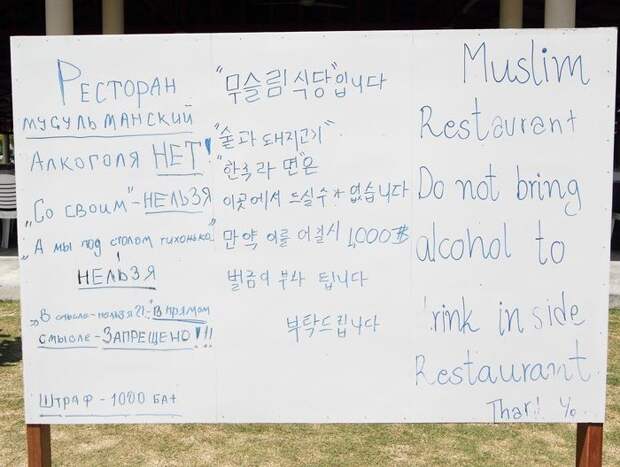 Ресторан
мусульманский
Алкоголя НЕТ!
"Со своим"-НЕЛЬЗЯ
"А мы под столом тихонько"
НЕЛЬЗЯ
"В смысле-нельзя?!-"В прямом
смысле-ЗАПРЕЩЕНО!!!
Штраф-1000 бат
"무슬림 식당"입니다
"술과 돼지고기"
"한국라면"은
이곳에서 드실수가 없습니다
만약 이를 어길시 1,000฿
벌금이 부과 됩니다
부탁드립니다
Muslim
Restaurant
Do not bring
alcohol to
rink in side
Restaurant